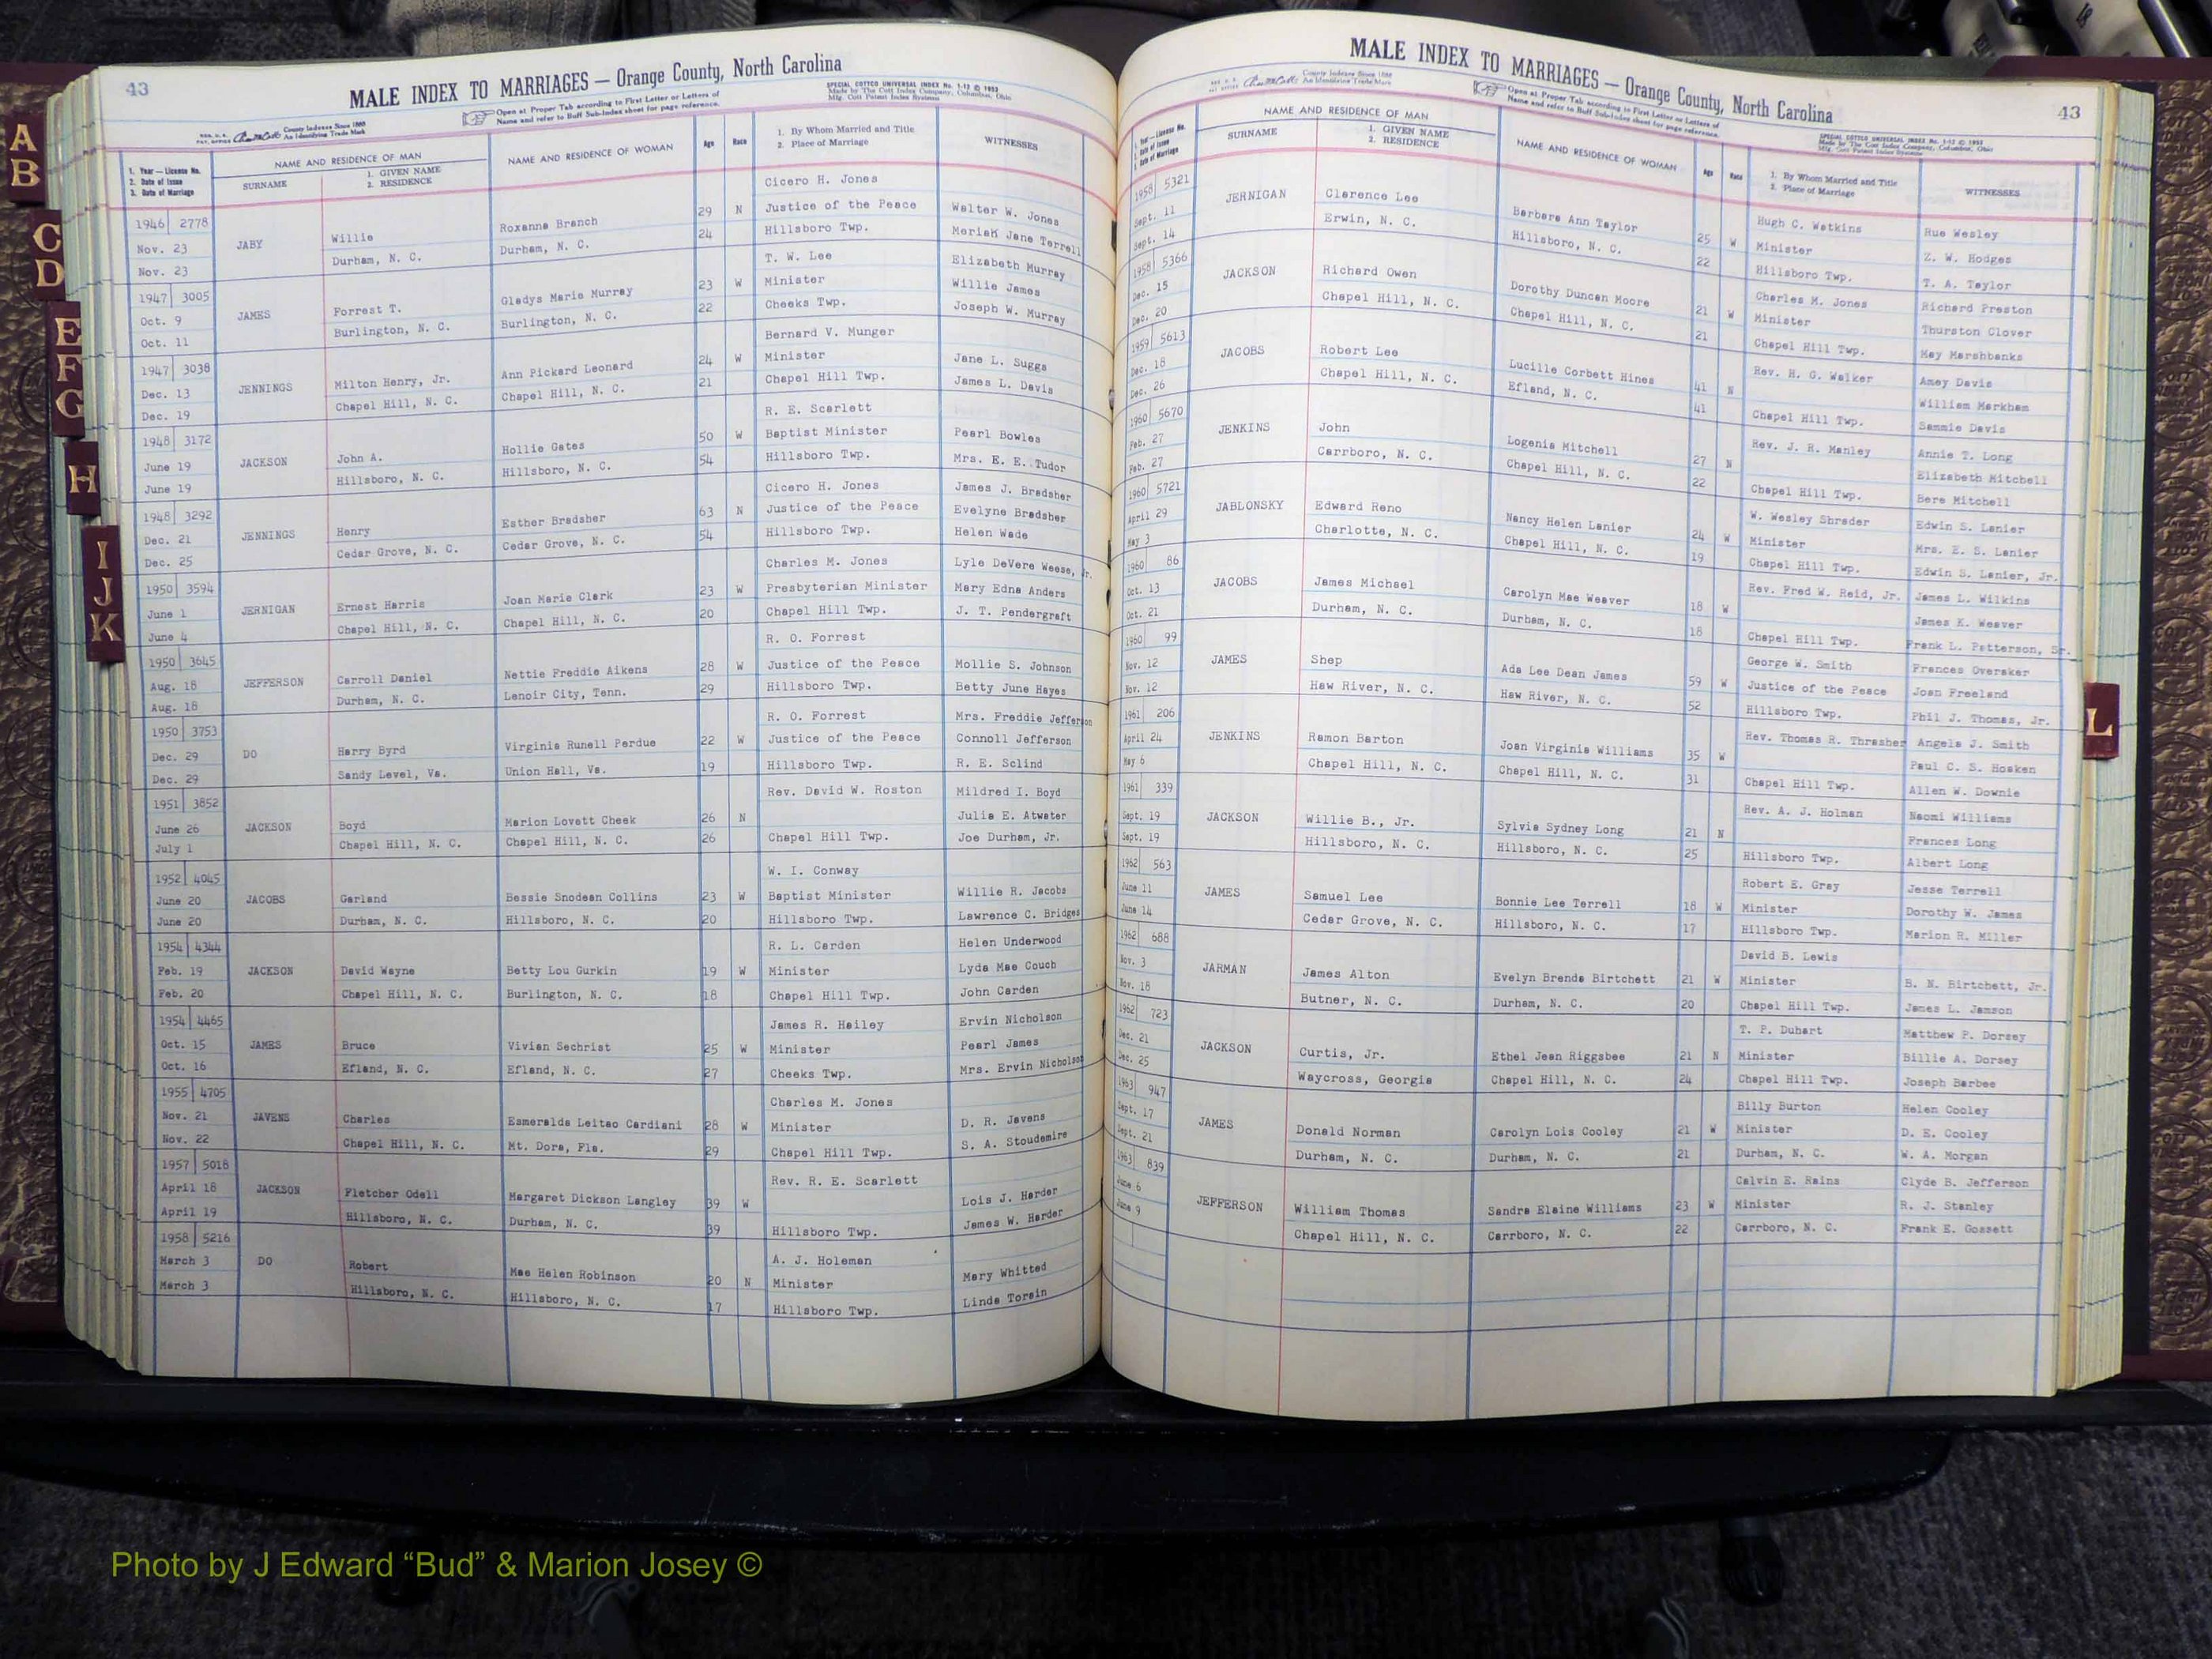 43
MALE INDEX TO MARRIAGES — Orange County, North Carolina
County Indexes Since 1888
An Identifying Trade Mark
Open at Proper Tab according to First Letter or Letters of
Name and refer to Buff Sub-Index sheet for page reference.
SPECIAL COTTCO UNIVERSAL INDEX No. 1-12 © 1953
Made by The Cott Index Company, Columbus, Ohio
Mfg. Cott Patent Index Systems
1. Year — License No.
2. Date of Issue
3. Date of Marriage
NAME AND RESIDENCE OF MAN
SURNAME
1. GIVEN NAME
2. RESIDENCE
NAME AND RESIDENCE OF WOMAN
Age
Race
1. By Whom Married and Title
2. Place of Marriage
WITNESSES
Cicero H. Jones
1946 2778 Roxanna Branch 29 N Justice of the Peace Walter W. Jones
Nov. 23 JABY Willie Durham, N. C. 24 Hillsboro Twp. Meriah Jane Terrell
Nov. 23 Durham, N. C.
T. W. Lee Elizabeth Murray
1947 3005 Gladys Marie Murray 23 W Minister Willie James
Oct. 9 JAMES Forrest T. Burlington, N. C. 22 Cheeks Twp. Joseph W. Murray
Oct. 11 Burlington, N. C.
Bernard V. Munger
1947 3038 Ann Pickard Leonard 24 W Minister Jane L. Suggs
Dec. 13 JENNINGS Milton Henry, Jr. Chapel Hill, N. C. 21 Chapel Hill Twp. James L. Davis
Dec. 19 Chapel Hill, N. C.
R. E. Scarlett
1948 3172 Hollie Gates 50 W Baptist Minister Pearl Bowles
June 19 JACKSON John A. Hillsboro, N. C. 54 Hillsboro Twp. Mrs. E. E. Tudor
June 19 Hillsboro, N. C.
Cicero H. Jones James J. Bradsher
1948 3292 Esther Bradsher 63 N Justice of the Peace Evelyne Bradsher
Dec. 21 JENNINGS Henry Cedar Grove, N. C. 54 Hillsboro Twp. Helen Wade
Dec. 25 Cedar Grove, N. C.
Charles M. Jones Lyle DeVere Weese, Jr.
1950 3594 Joan Marie Clark 23 W Presbyterian Minister Mary Edna Anders
June 1 JERNIGAN Ernest Harris Chapel Hill, N. C. 20 Chapel Hill Twp. J. T. Pendergraft
June 4 Chapel Hill, N. C.
R. O. Forrest
1950 3645 Nettie Freddie Aikens 28 W Justice of the Peace Mollie S. Johnson
Aug. 18 JEFFERSON Carroll Daniel Lenoir City, Tenn. 29 Hillsboro Twp. Betty June Hayes
Aug. 18 Durham, N. C.
R. O. Forrest Mrs. Freddie Jefferson
1950 3753 Virginia Runell Perdue 22 W Justice of the Peace Connoll Jefferson
Dec. 29 DO Harry Byrd Union Hall, Va. 19 Hillsboro Twp. R. E. Sclind
Dec. 29 Sandy Level, Va.
Rev. David W. Roston Mildred I. Boyd
1951 3852 Marion Lovett Cheek 26 N Julia E. Atwater
June 26 JACKSON Boyd Chapel Hill, N. C. 26 Chapel Hill Twp. Joe Durham, Jr.
July 1 Chapel Hill, N. C.
W. I. Conway
1952 4045 Bessie Snodean Collins 23 W Baptist Minister Willie R. Jacobs
June 20 JACOBS Garland Hillsboro, N. C. 20 Hillsboro Twp. Lawrence C. Bridges
June 20 Durham, N. C.
1954 4344 R. L. Carden Helen Underwood
Feb. 19 JACKSON David Wayne Betty Lou Gurkin 19 W Minister Lyda Mae Couch
Feb. 20 Chapel Hill, N. C. Burlington, N. C. 18 Chapel Hill Twp. John Carden
1954 4465 James R. Hailey Ervin Nicholson
Oct. 15 JAMES Bruce Vivian Sechrist 25 W Minister Pearl James
Oct. 16 Efland, N. C. Efland, N. C. 27 Cheeks Twp. Mrs. Ervin Nicholson
1955 4705 Charles M. Jones
Nov. 21 JAVENS Charles Esmeralda Leitao Cardiani 28 W Minister D. R. Javens
Nov. 22 Chapel Hill, N. C. Mt. Dora, Fla. 29 Chapel Hill Twp. S. A. Stoudemire
1957 5018 Rev. R. E. Scarlett
April 18 JACKSON Fletcher Odell Margaret Dickson Langley 39 W Lois J. Harder
April 19 Hillsboro, N. C. Durham, N. C. 39 Hillsboro Twp. James W. Harder
1958 5216 A. J. Holeman
March 3 DO Robert Mae Helen Robinson 20 N Minister Mary Whitted
March 3 Hillsboro, N. C. Hillsboro, N. C. 17 Hillsboro Twp. Linda Torain
MALE INDEX TO MARRIAGES — Orange County, North Carolina
43
County Indexes Since 1888
An Identifying Trade Mark
Open at Proper Tab according to First Letter or Letters of
Name and refer to Buff Sub-Index sheet for page reference.
SPECIAL COTTCO UNIVERSAL INDEX No. 1-12 © 1953
Made by The Cott Index Company, Columbus, Ohio
Mfg. Cott Patent Index Systems
Year — License No.
Date of Issue
Date of Marriage
NAME AND RESIDENCE OF MAN
SURNAME
1. GIVEN NAME
2. RESIDENCE
NAME AND RESIDENCE OF WOMAN
Age
Race
1. By Whom Married and Title
2. Place of Marriage
WITNESSES
1958 5321 Hugh C. Watkins Rue Wesley
Sept. 11 JERNIGAN Clarence Lee Barbara Ann Taylor 25 W Minister Z. W. Hodges
Sept. 14 Erwin, N. C. Hillsboro, N. C. 22 Hillsboro Twp. T. A. Taylor
1958 5366 Charles M. Jones Richard Preston
Dec. 15 JACKSON Richard Owen Dorothy Duncan Moore 21 W Minister Thurston Clover
Dec. 20 Chapel Hill, N. C. Chapel Hill, N. C. 21 Chapel Hill Twp. May Marshbanks
1959 5613 Rev. H. G. Walker Amey Davis
Dec. 18 JACOBS Robert Lee Lucille Corbett Hines 41 N William Markham
Dec. 26 Chapel Hill, N. C. Efland, N. C. 41 Chapel Hill Twp. Sammie Davis
1960 5670 Rev. J. R. Manley Annie T. Long
Feb. 27 JENKINS John Logenia Mitchell 27 N Elizabeth Mitchell
Feb. 27 Carrboro, N. C. Chapel Hill, N. C. 22 Chapel Hill Twp. Bere Mitchell
1960 5721 W. Wesley Shrader Edwin S. Lanier
April 29 JABLONSKY Edward Reno Nancy Helen Lanier 24 W Minister Mrs. E. S. Lanier
May 3 Charlotte, N. C. Chapel Hill, N. C. 19 Chapel Hill Twp. Edwin S. Lanier, Jr.
1960 86 Rev. Fred W. Reid, Jr. James L. Wilkins
Oct. 13 JACOBS James Michael Carolyn Mae Weaver 18 W James K. Weaver
Oct. 21 Durham, N. C. Durham, N. C. 18 Chapel Hill Twp. Frank L. Patterson, Sr.
1960 99 George W. Smith Frances Overaker
Nov. 12 JAMES Shep Ada Lee Dean James 59 W Justice of the Peace Joan Freeland
Nov. 12 Haw River, N. C. Haw River, N. C. 52 Hillsboro Twp. Phil J. Thomas, Jr.
1961 206 Rev. Thomas R. Thrasher Angela J. Smith
April 24 JENKINS Ramon Barton Joan Virginia Williams 35 W Paul C. S. Hosken
May 6 Chapel Hill, N. C. Chapel Hill, N. C. 31 Chapel Hill Twp. Allen W. Downie
1961 339 Rev. A. J. Holman Naomi Williams
Sept. 19 JACKSON Willie B., Jr. Sylvia Sydney Long 21 N Frances Long
Sept. 19 Hillsboro, N. C. Hillsboro, N. C. 25 Hillsboro Twp. Albert Long
1962 563 Robert E. Gray Jesse Terrell
June 11 JAMES Samuel Lee Bonnie Lee Terrell 18 W Minister Dorothy W. James
June 14 Cedar Grove, N. C. Hillsboro, N. C. 17 Hillsboro Twp. Marion R. Miller
1962 688 David B. Lewis
Nov. 3 JARMAN James Alton Evelyn Brenda Birtchett 21 W Minister B. N. Birtchett, Jr.
Nov. 18 Butner, N. C. Durham, N. C. 20 Chapel Hill Twp. James L. Jamson
1962 723 T. P. Duhart Matthew P. Dorsey
Dec. 21 JACKSON Curtis, Jr. Ethel Jean Riggsbee 21 N Minister Billie A. Dorsey
Dec. 25 Waycross, Georgia Chapel Hill, N. C. 24 Chapel Hill Twp. Joseph Barbee
1963 947 Billy Burton Helen Cooley
Sept. 17 JAMES Donald Norman Carolyn Lois Cooley 21 W Minister D. E. Cooley
Sept. 21 Durham, N. C. Durham, N. C. 21 Durham, N. C. W. A. Morgan
1963 839 Calvin E. Rains Clyde B. Jefferson
June 6 JEFFERSON William Thomas Sandra Elaine Williams 23 W Minister R. J. Stanley
June 9 Chapel Hill, N. C. Carrboro, N. C. 22 Carrboro, N. C. Frank E. Gossett
A
B
C
D
E
F
G
H
I
J
K
L
Photo by J Edward “Bud” & Marion Josey ©